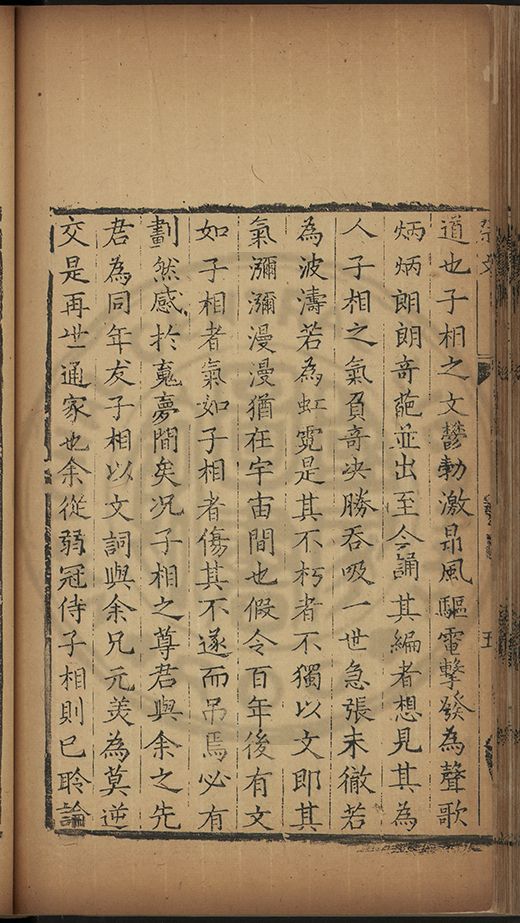 道也子相之文鬱勃激昂風驅電擊發為聲歌
炳炳朗朗奇葩並出至今誦其編者想見其為
人子相之氣負奇决勝吞吸一世急張未徹若
為波濤若為虹霓是其不朽者不獨以文即其
氣瀰瀰漫漫猶在宇宙間也假令百年後有文
如子相者氣如子相者傷其不遂而吊焉必有
劃然感於䰟夢間矣况子相之尊君與余之先
君為同年友子相以文詞與余兄元美為莫逆
交是再世通家也余從弱冠侍子相則已聆論